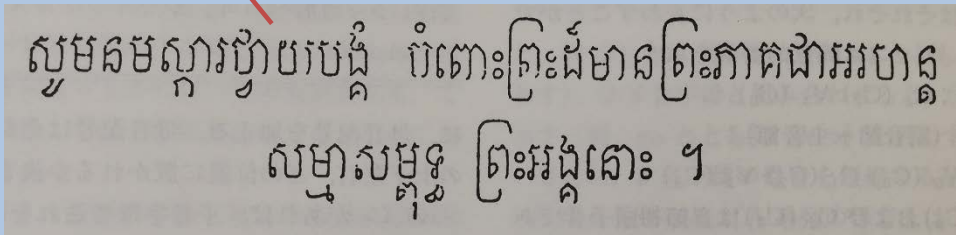 សូមនមស្ការថ្វាយបង្គំ បំពោះព្រះដ៏មានព្រះភាគជាអរហន្ត
សម្មាសម្ពុទ្ធ ព្រះអង្គនោះ ។